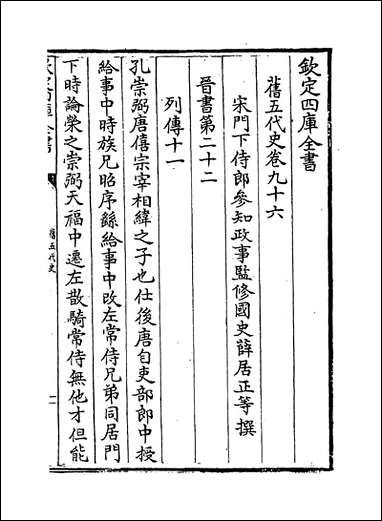 欽定四庫全書
舊五代史卷九十六
宋門下侍郎參知政事監修國史薛居正等撰
晉書第二十二
列傳十一
孔崇弼唐僖宗宰相緯之子也仕後唐自吏部郎中授
給事中時族兄昭序繇給事中改左常侍兄弟同居門
下時論榮之崇弼天福中遷左散騎常侍無他才但能
欽定四庫全書
舊五代史
一